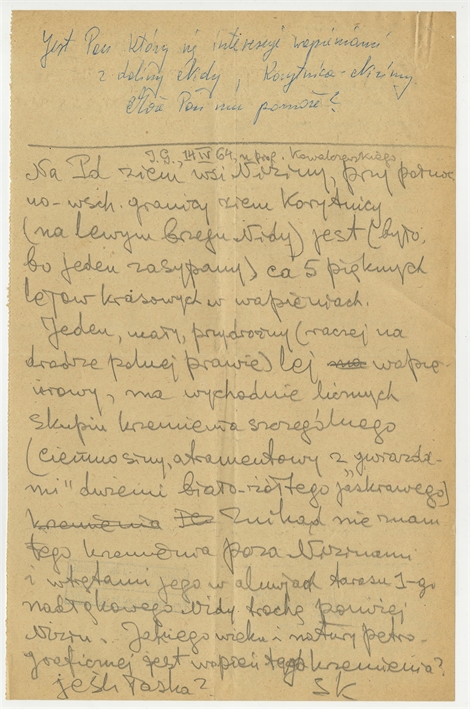 Jest Pan który się interesuje wapieniami
z doliny Nidy Korytnica - Niziny.
Może Pan mi pomoże?
J.G., 14 IV 64, u prof. Kowalczewskiego
Na Pd ziem wsi Niziny, przy północ
no-wsch. granicy ziem Korytnicy
(na lewym brzegu Nidy) jest (było,
bo jeden zasypany) ca 5 pięknych
lejów krasowych w wapieniach.
Jeden, mały, przydrożny (raczej na
drodze polnej prawie) lej wapie-
niowy, ma wychodnie licznych
skupień krzemienia szczególnego
(ciemno siny, atramentowy z "gwiazda-
mi" dużemi biało-żółtego jaskrawego)
krzemienia Znikąd nie znam
tego krzemienia poza Nizinami
i wtrętami jego w aluwjach tarasu I-go
nadłąkowego Nidy trochę poniżej
Nizin. Jakiego wieku i natury petro-
graficznej jest wapień tego krzemienia?
jeśli łaska? SK